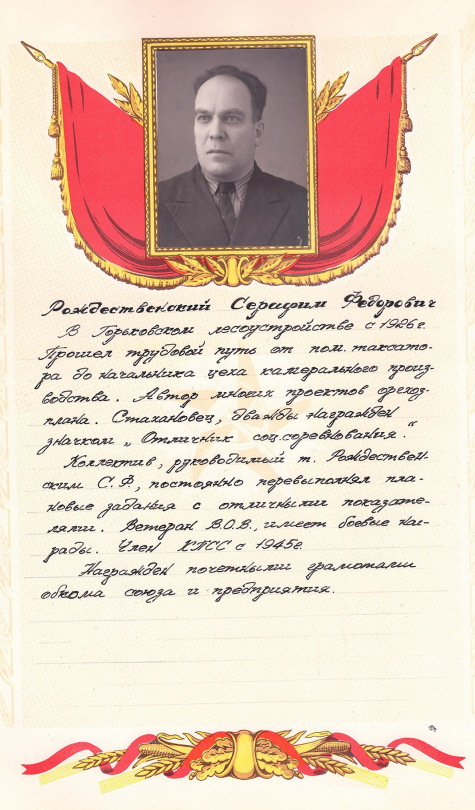 Рождественский Серафим Федорович
В Горьковском лесоустройстве с 1926г.
Прошел трудовой путь от пом. таксато-
ра до начальника цеха камерального произ-
водства. Автор многих проектов оргхоз-
плана. Стахановец, дважды награжден
значком „Отличник соц.соревнования."
Коллектив, руководимый т. Рождествен-
ским С.Ф., постоянно перевыполнял пла-
новые задания с отличными показате-
лями. Ветеран В.О.В., имеет боевые наг-
рады. Член КПСС с 1945г.
Награжден почетными грамотами
обкома союза и предприятия.